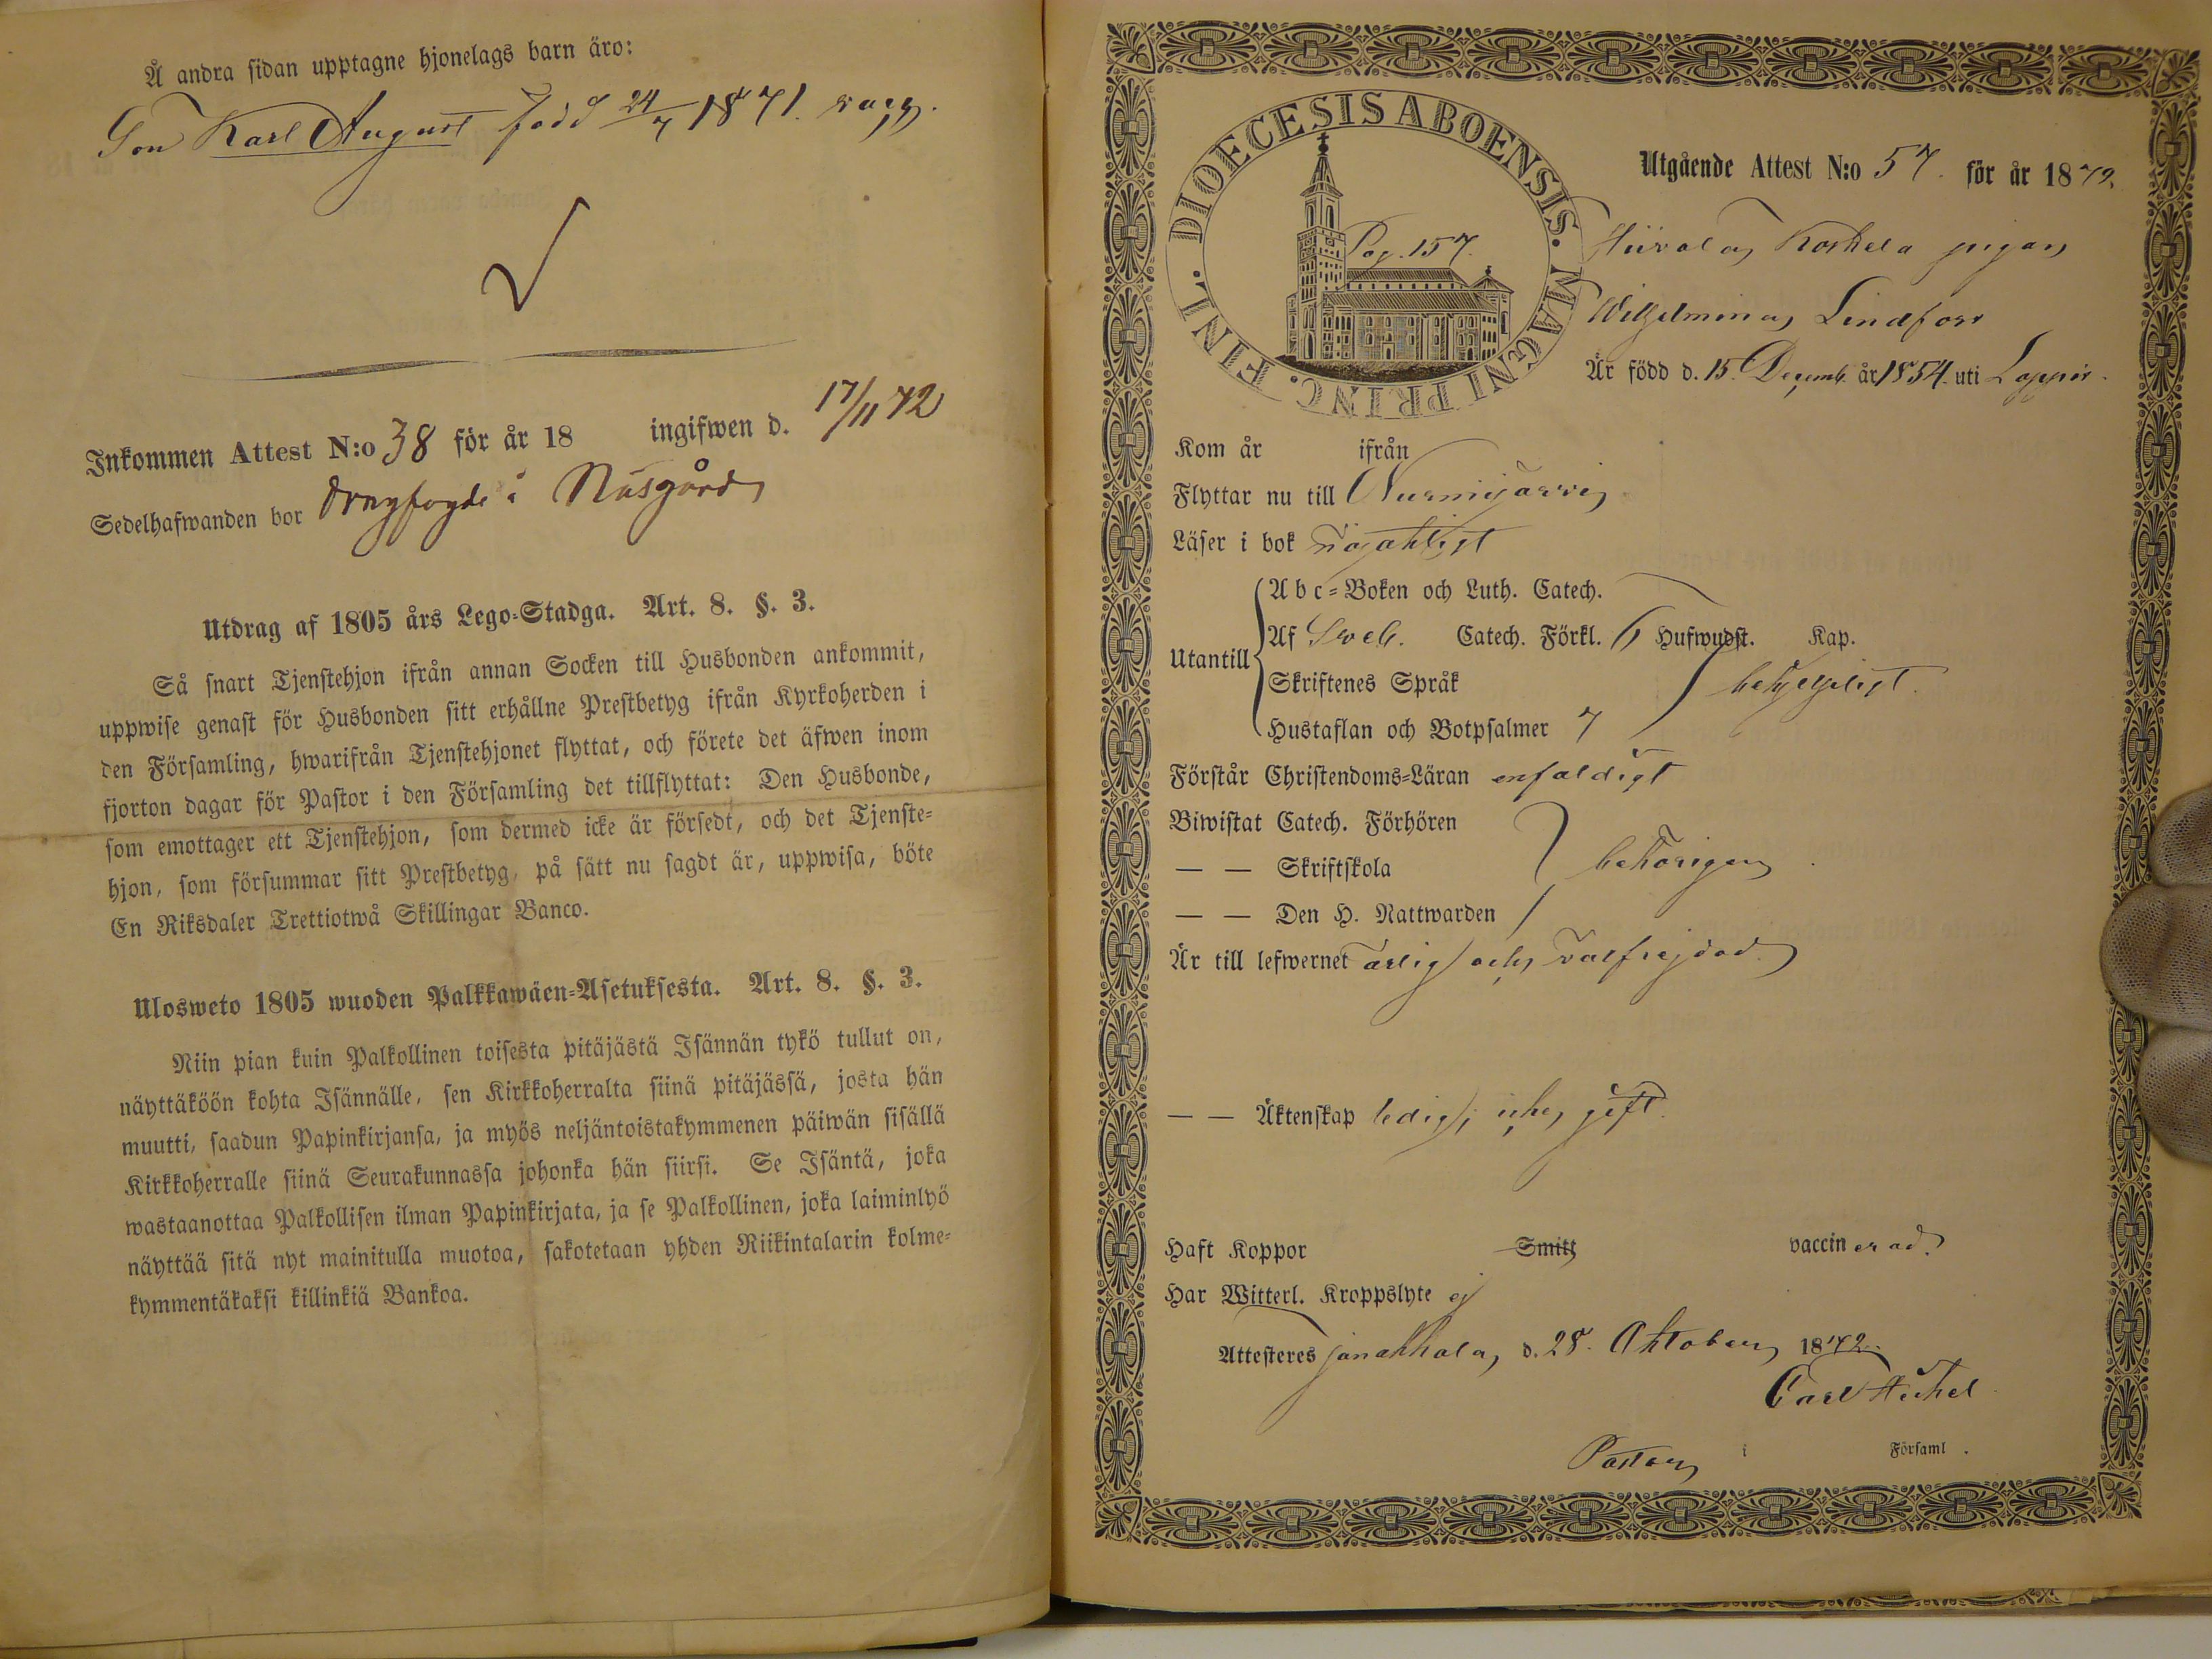 Å andra sidan upptagne hjonelags barn äro:
Son Karl August född 24/7 1871. vacc.
Inkommen Attest N:o 38 för år 18 ingifwen d. 17/11 72
Sedelhafwanden bor i Näsgård
Utdrag af 1805 års Lego-Stadga. Art. 8. §. 3.
Så snart Tjenstehjon ifrån annan Socken till Husbonden ankommit,
uppwise genast för Husbonden sitt erhållne Prestbetyg ifrån Kyrkoherden i
den Församling, hwarifrån Tjenstehjonet flyttat, och förete det äfwen inom
fjorton dagar för Pastor i den Församling det tillflyttat: Den Husbonde,
som emottager ett Tjenstehjon, som dermed icke är försedt, och det Tjenste-
hjon, som försummar sitt Prestbetyg, på sätt nu sagdt är, uppwisa, böte
En Riksdaler Trettiotwå Skillingar Banco.
Ulosweto 1805 wuoden Palkkawäen-Asetuksesta. Art. 8. §. 3.
Niin pian kuin Palkollinen toisesta pitäjästä Isännän tykö tullut on,
näyttäköön kohta Isännälle, sen Kirkkoherralta siinä pitäjässä, josta hän
muutti, saadun Papinkirjansa, ja myös neljäntoistakymmenen päiwän sisällä
Kirkkoherralle siinä Seurakunnassa johonka hän siirsi. Se Isäntä, joka
wastaanottaa Palkollisen ilman Papinkirjata, ja se Palkollinen, joka laiminlyö
näyttää sitä nyt mainitulla muotoa, sakotetaan yhden Riikintalarin kolme-
kymmentäkaksi killinkiä Bankoa.
DIOECESIS ABOENSIS. MAGNI PRINC. FINL.
Pag. 157.
Utgående Attest N:o 57. för år 1872.
Koskela pigan
Wilhelmina Lindfors
Är född d. 15 Decemb. år 1854. uti Loppis.
Kom år ifrån
Flyttar nu till Nurmijärvi
Läser i bok nöjaktligt
Utantill
Abc-Boken och Luth. Catech.
Af Sweb. Catech. Förkl. 6 Hufwudst. Kap.
Skriftenes Språk behjelpligt.
Hustaflan och Botpsalmer 7
Förstår Christendoms-Läran enfaldigt
Biwistat Catech. Förhören
— — Skriftskola behörigen
— — Den H. Nattwarden
Är till lefwernet ärlig och välfrejdad.
— — Äktenskap ledig, icke gift.
Haft Koppor Smitt vaccinerad.
Har Witterl. Kroppslyte ej
Attesteres Janakkala, d. 28. Oktober 1872.
Carl
Pastor i Församl.